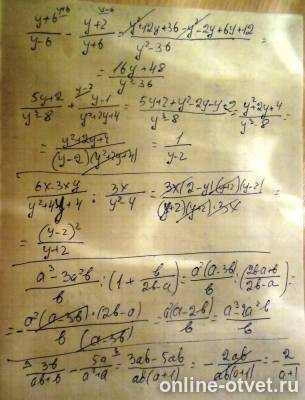 (y+6)/(y-6) - (y+2)/(y+6) = (y²+12y+36-y²-2y+6y+12)/(y²-36) =
= (16y+48)/(y²-36)
(5y+2)/(y³-8) + (y-1)/(y²+2y+4) = (5y+2+y²-2y-y+2)/(y³-8) = (y²+2y+4)/(y³-8) =
= (y²+2y+4)/((y-2)(y²+2y+4)) = 1/(y-2)
(6x-3xy)/(y²+4y+4) : 3x/(y²-4) = (3x(2-y)(y+2)(y-2))/((y+2)(y+2)·3x) =
= (y-2)²/(y+2)
(a³-3a²b)/b · (1 + b/(2b-a)) = a²(a-3b)/b · (2b-a+b)/(2b-a) =
= -a²(a-3b)·(2b-a)/(b(a-3b)) = a²(a-2b)/b = (a³-2a²b)/b
3b/(ab+b) - 5a/(a²+a) = (3ab-5ab)/(ab(a+1)) = -2ab/(ab(a+1)) = -2/(a+1)
online-otvet.ru